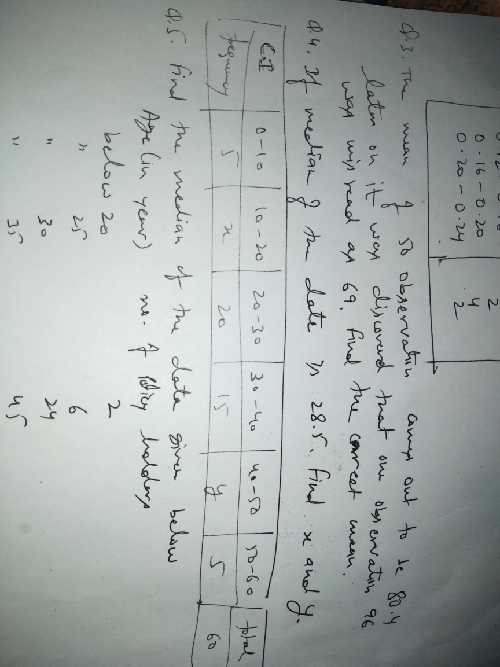 0.16-0.20 4
0.20-0.24 2
Q.3. The mean of 50 observation comes out to be 80.4
later on it was discovered that one observation 96
was misread as 69. Find the correct mean.
Q.4. If median of the data is 28.5. Find x and y.
C.I 0-10 10-20 20-30 30-40 40-50 50-60 total
frequency 5 x 20 15 y 5 60
Q.5. Find the median of the data given below
Age (in years) no. of policy holders
below 20 2
" 25 6
" 30 24
" 35 45